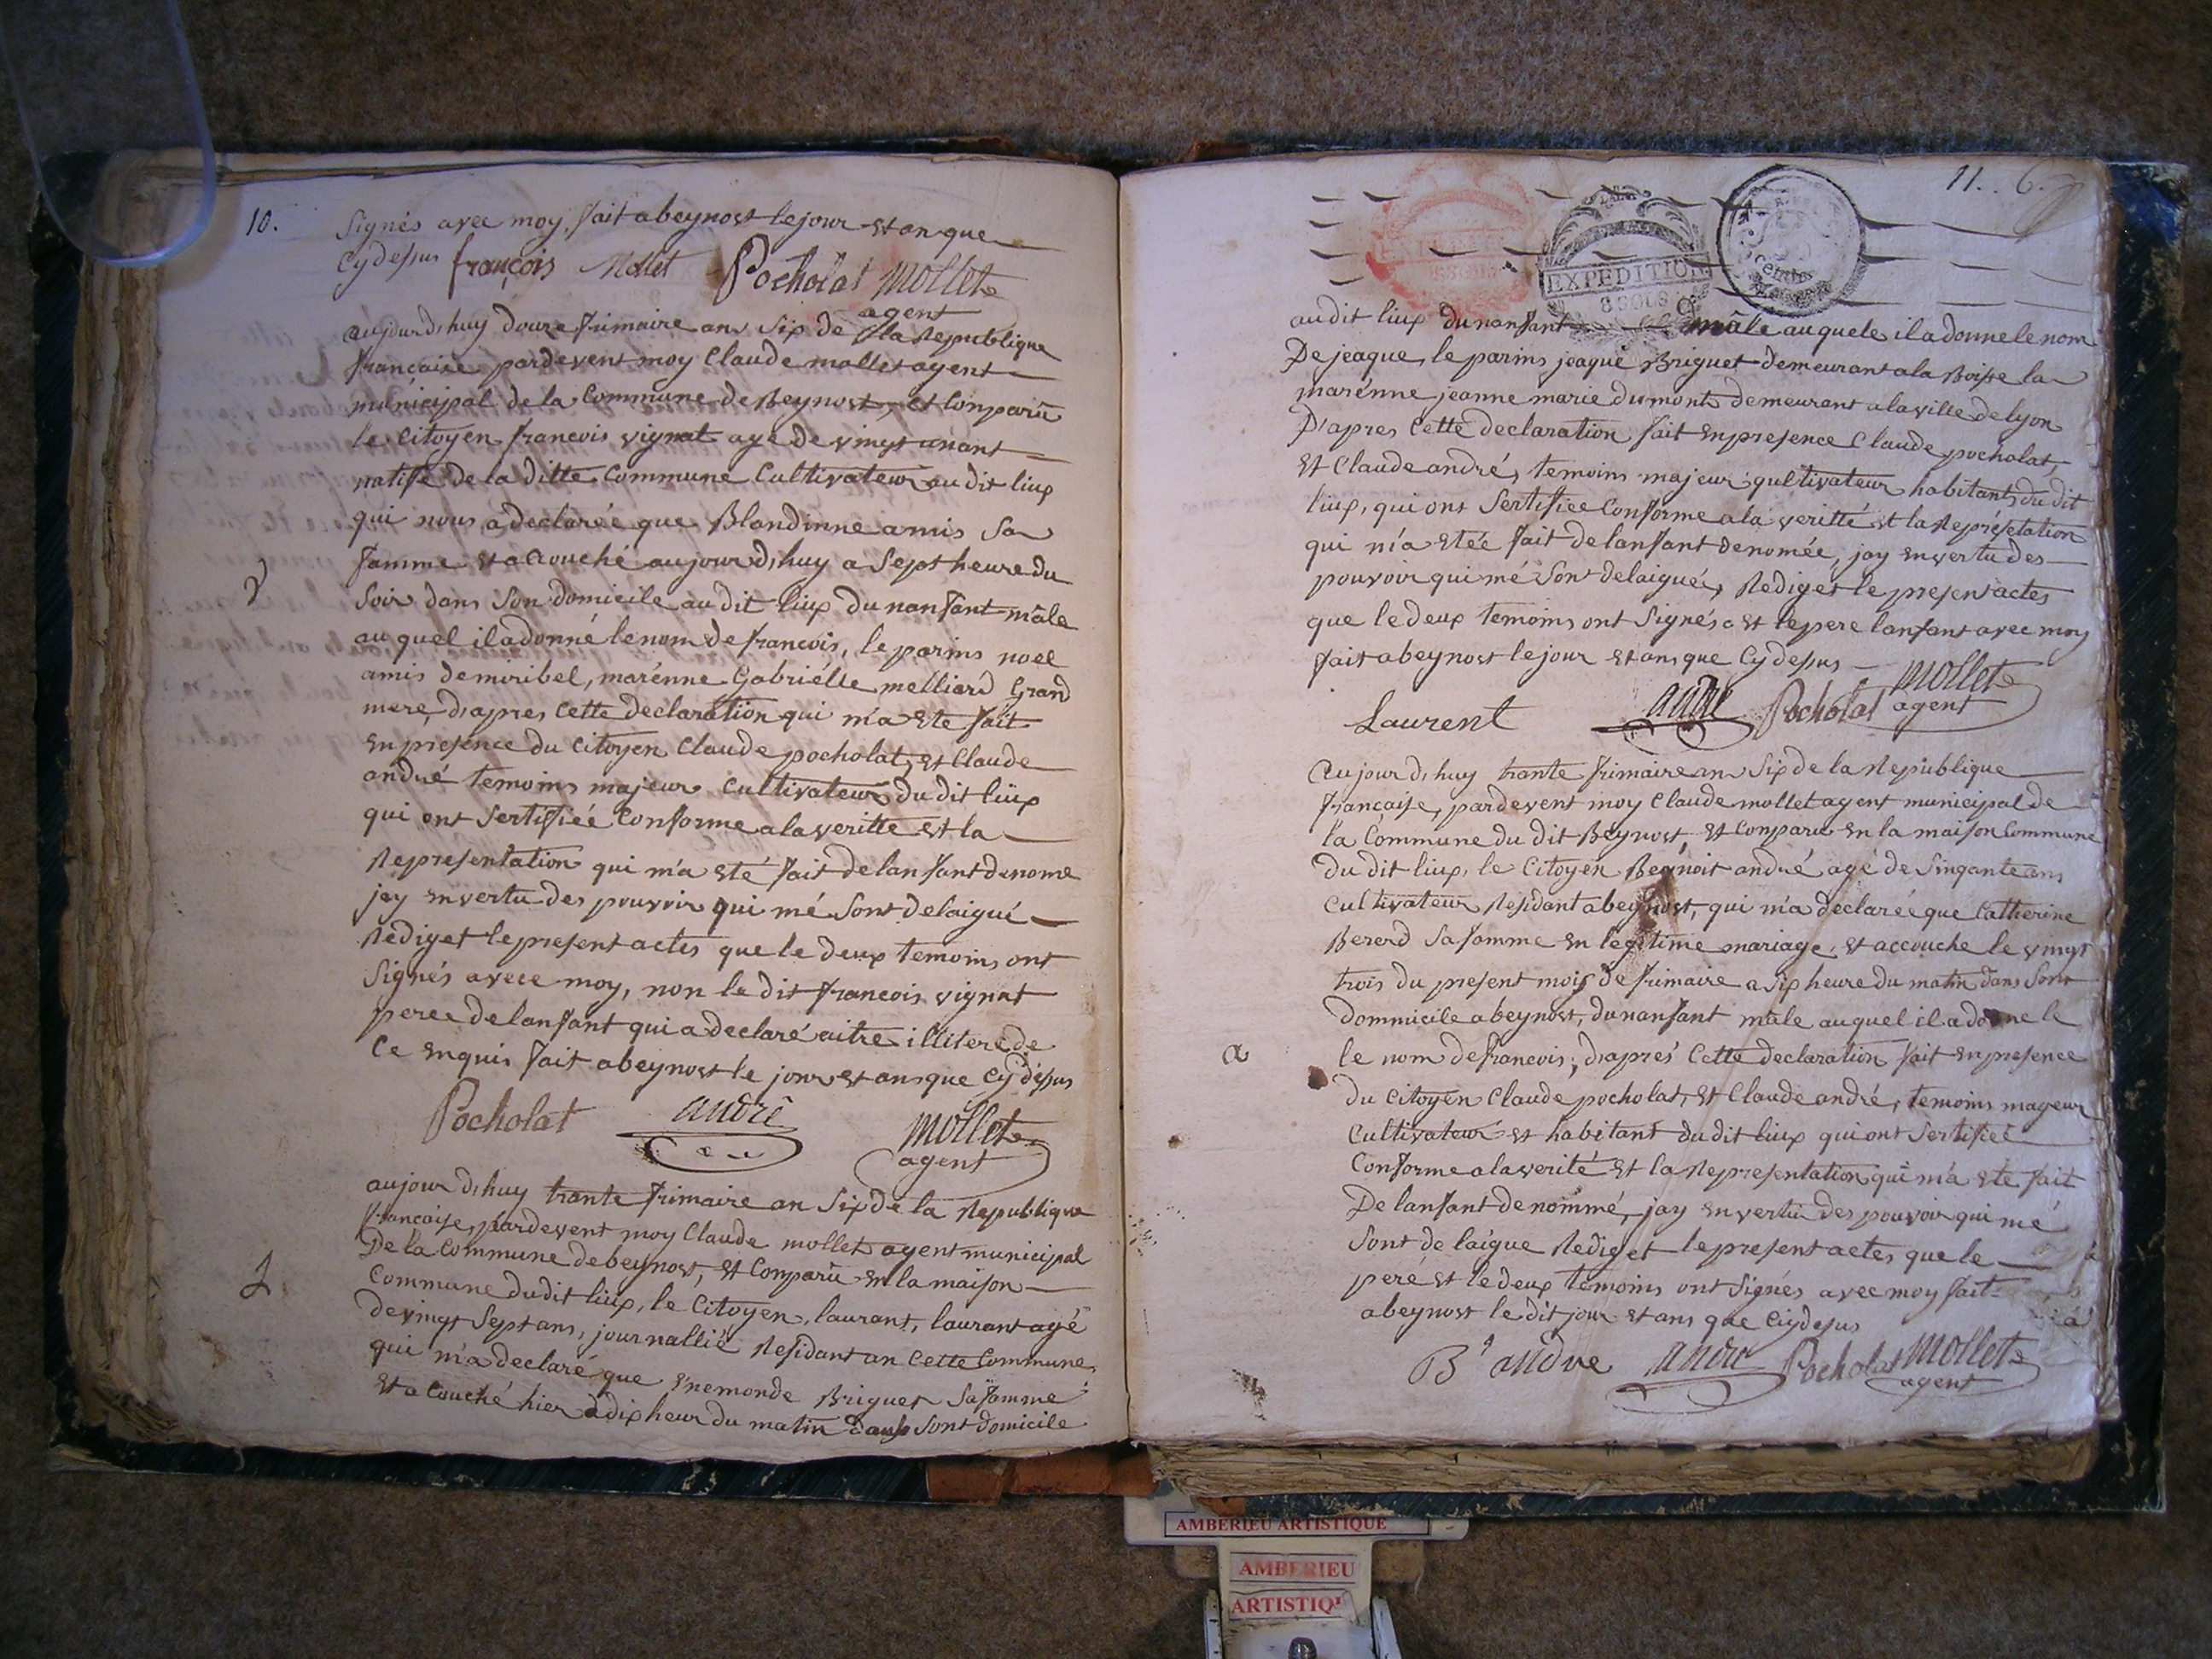 10.
Signés avec moy, fait a beynost le jour et an que
Cy dessus françois Mollet Pocholat mollet
agent
aujourd'huy douze frimaire ans six de la Republique
francaise pardevent moy Claude mollet agent
municipal de la Commune de Beynost, et Conparû
le Citoyen francois vignat agé de vingt un ant
natife de la ditte Commune Cultivateur au dit liux
qui nous a declarée que Blandinne amis Sa
famme et acouché aujourd'huy a Sept heure du
Soir dans Son domicile au dit liux du nanfant mâle
au quel il a donné le nom de francois, le parins noel
amis de miribel, marénne Gabriélle melliard Grand
mere, d'apres Cette declaration qui m'a ete fait
en presence du Citoyen Claude pocholat, et Claude
andué temoins majeur Cultivateur du dit liux
qui ont Sertifiée Conforme a la veritte et la
Representation qui m'a eté fait de lanfant denome
jey en vertu des pouvoir qui mé Sont delaigué
Rediget le present actes que le deux temoins ont
Signés avece moy, non le dit francois vignat
peree de lanfant qui a declaré aitre illitere de
Ce enquis fait a beynost le jour et ans que Cy dessus
Pocholat andré mollet
agent
aujourd'huy trante frimaire an Six de la Republique
francaise, pardevent moy Claude mollet agent municipal
De la Commune de beynost, et Conparû en la maison
Commune du dit liux, le Citoyen, laurant, laurant agé
de vingt Sept ans, journallié Residant an Cette Commune,
qui m'a declaré que enemonde Briguet Sa famme
et a Couché hier a dix heur du matin dans Sont domicile
11. 6.
EXPEDITION
8 SOUS
au dit liux du nanfant mâle au quele il a donne le nom
De jeaque, le parins jeaque Briguet demeurant a la Boisse la
marénne jeanne marie dumont demeurant a la ville de lyon
D'apres Cette declaration fait en presence Claude pocholat,
et Claude andré, temoins majeur qultivateur habitants du dit
liux, qui ont Sertifiee Conforme a la veritté et la Represetation
qui m'a etée fait de lanfant denomée, jay en vertu des
pouvoir qui mé Sont delaiguée, Rediget le present actes
que le deux temoins ont Signés et le pere lanfant avec moy
fait a beynost le jour et ans que Cy dessus
Laurent andré Pocholat mollet
agent
Aujourd'huy trante frimaire an Six de la Republique
francaise, pardevent moy Claude mollet agent municipal de
la Commune du dit Beynost, et Conparu en la maison Commune
du dit liux, le Citoyen Beynoit andué agé de Sinqante ans
Cultivateur Residant a beynost, qui m'a declarée que Catherine
Bererd Sa famme en legitime mariage, et accouche le vingt
trois du present mois de frimaire a Six heure du matin dans Sont
dommicile a beynost, du nanfant mâle au quel il a donne le
le nom de francois, d'aprés Cette declaration fait en presence
du Citoyen Claude pocholat, et Claude andré, temoins mageur
Cultivateur et habitant du dit liux qui ont Sertifieé
Conforme a la verité et la Representation qui m'a ete fait
De lanfant denommé, jay en vertu des pouvoir qui mé
Sont delaigue Rediget le present actes que le
peré et le deux temoins ont Signés avec moy fait
a beynost le dit jour et ans que Cy desus
Bt andre andré Pocholat mollet
agent
AMBERIEU ARTISTIQUE
AMBERIEU
ARTISTIQ